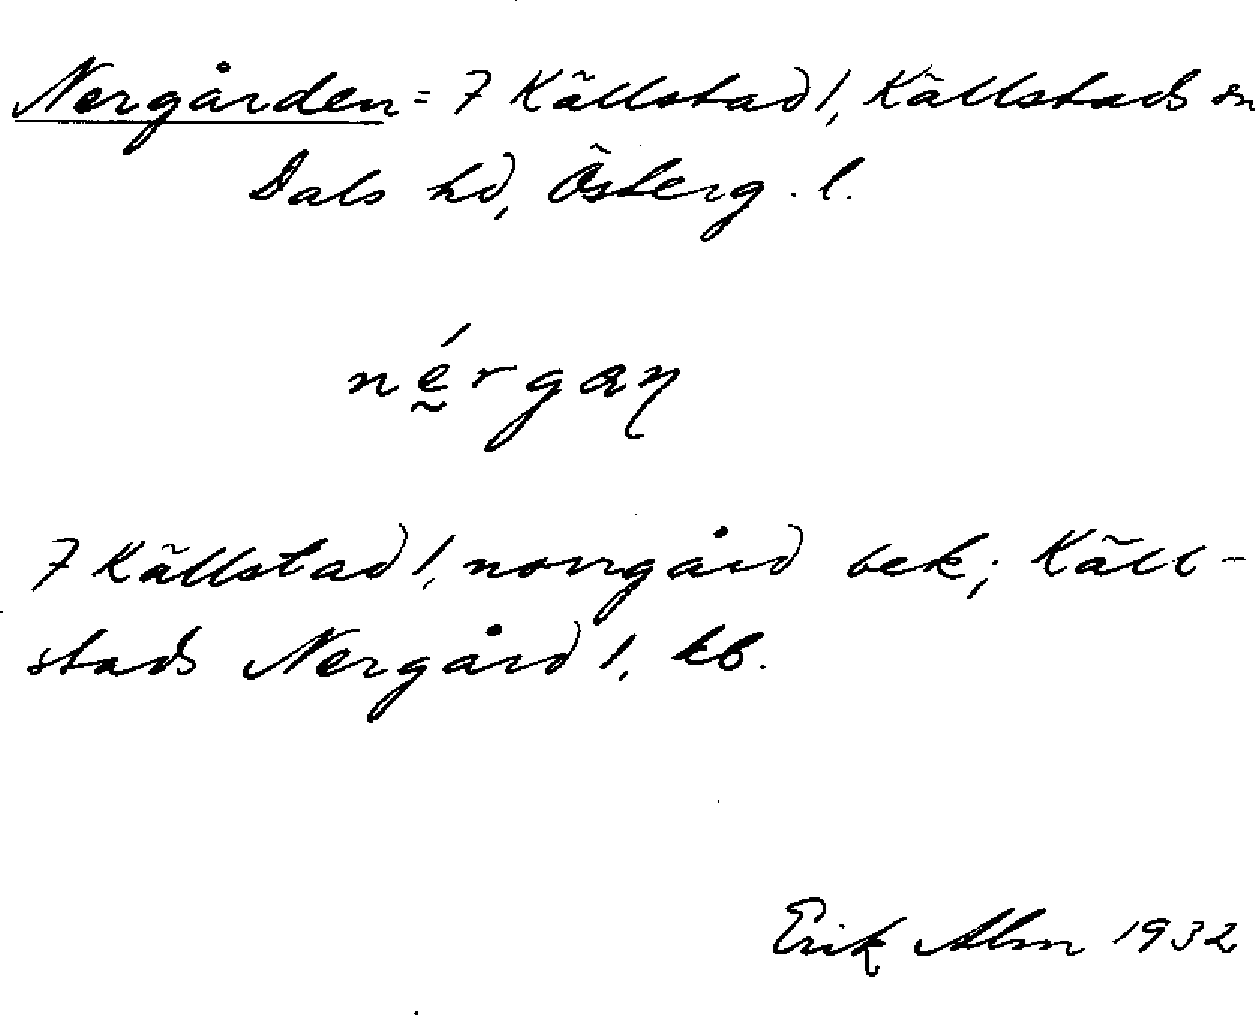 Nergården = 7 Källstad !, Källstads sn
Dals hd, Österg. l.
nḛ́rgaꞃ
7 Källstad !, norrgård bek; Käll-
stads Nergård !, kb.
Erik Alm 1932